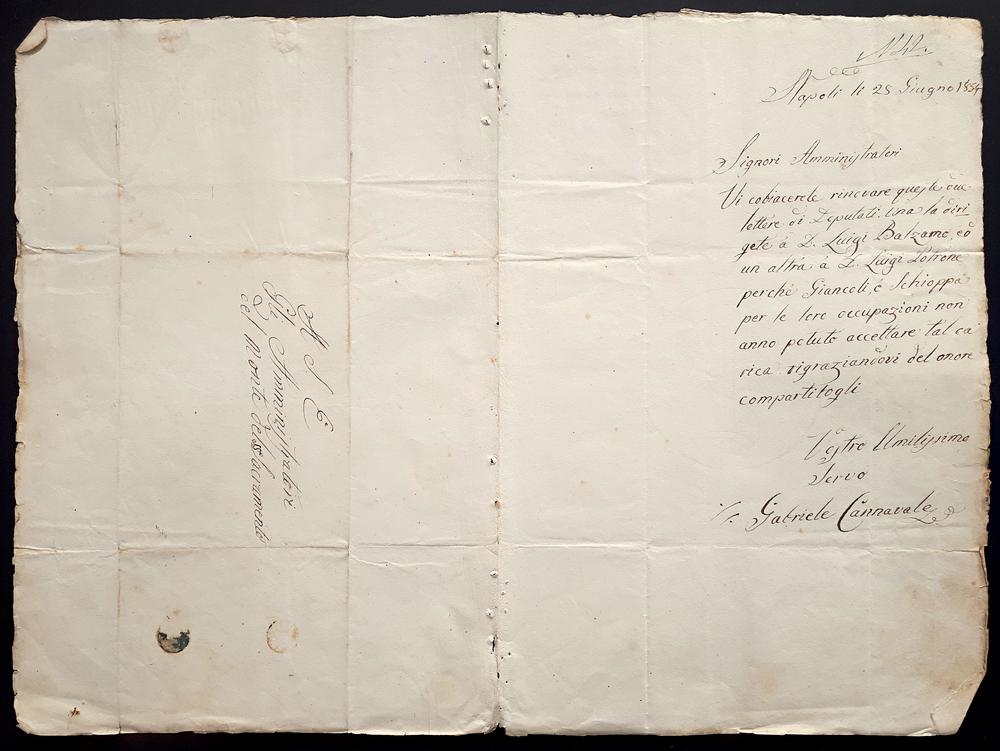 N 42.
Napoli li 28 Giugno 1834
Signori Amministratori
Vi cobiacerete rinovare queste due
lettere di Deputati. Una la diri
gete á D. Luigi Balzamo, ed
un altra á D. Luigi Lotrone
perché Giancoli, é Schioppa
per le loro occupazioni non
anno potuto accettare tal ca
rica rigraziandovi del onore
compartitogli
Vostro Umilissimo
Servo
Gabriele Cannavale
A S E
Gli Amministratori
del Monte del Sacramento